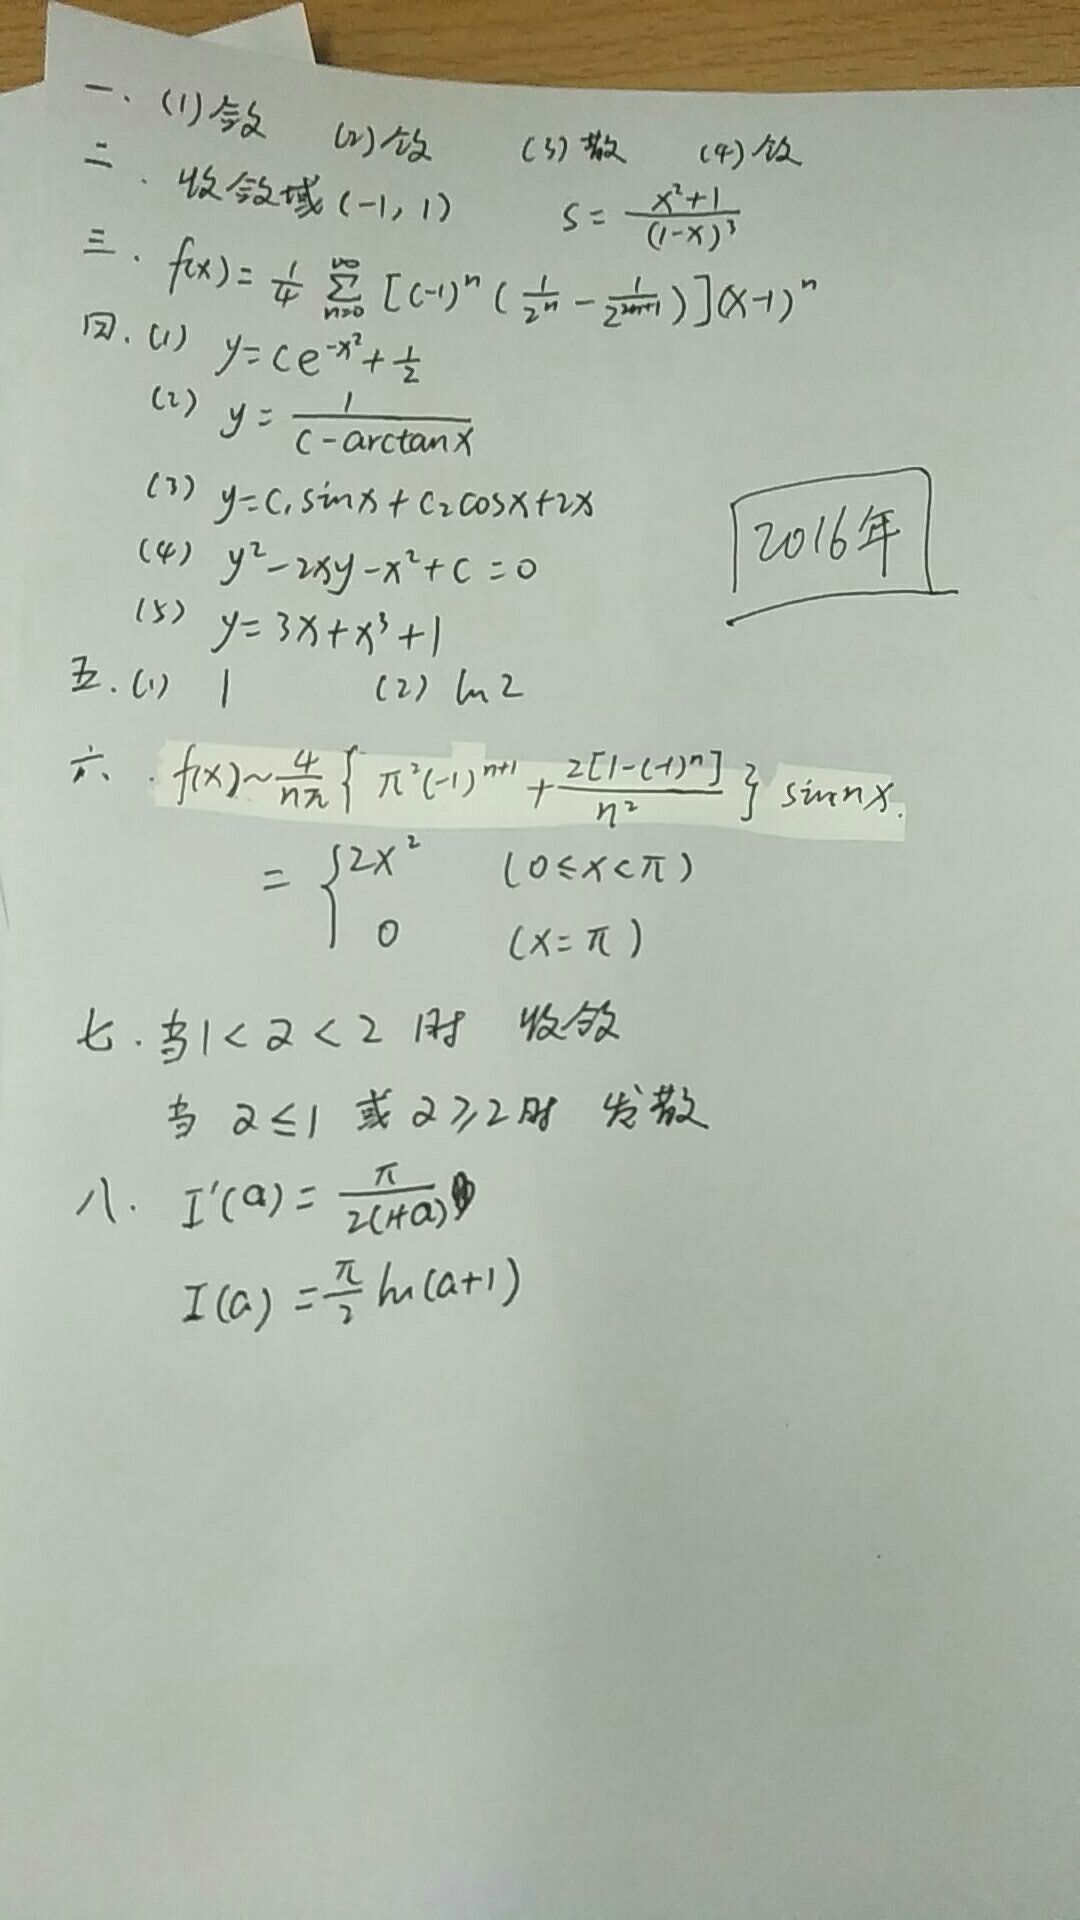 一. (1) 敛 (2) 敛 (3) 散 (4) 敛
二. 收敛域 (-1, 1) S = \frac{x²+1}{(1-x)³}
三. f(x) = \frac{1}{4} \sum_{n=0}^{∞} [(-1)^n (\frac{1}{2^n} - \frac{1}{2^{2n+1}})] (x-1)^n
四. (1) y = ce^{-x²} + \frac{1}{2}
(2) y = \frac{1}{c - arctanx}
(3) y = c₁sinx + c₂cosx + 2x
(4) y² - 2xy - x² + c = 0
2016年
(5) y = 3x + x³ + 1
五. (1) 1 (2) ln2
六. f(x) ~ \frac{4}{nπ} { π²(-1)^{n+1} + \frac{2[1-(-1)^n]}{n²} } sinnx.
= { 2x² (0≤x<π)
0 (x=π)
七. 当1<2<2时 收敛
当 2≤1 或 2≥2时 发散
八. I'(a) = \frac{π}{2(1+a)}
I(a) = \frac{π}{2} ln(a+1)